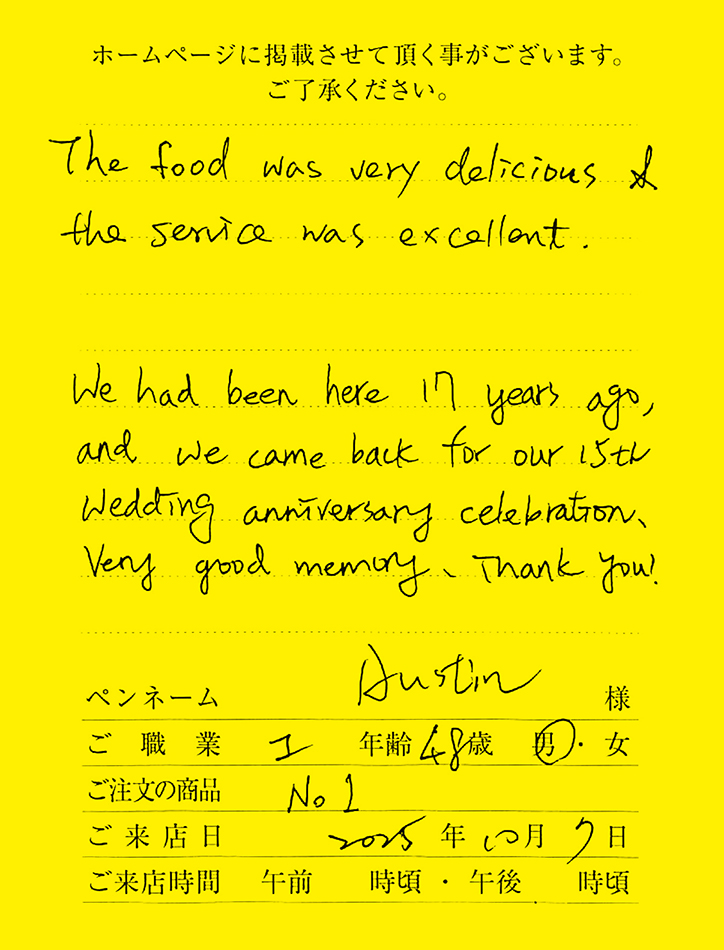 ホームページに掲載させて頂く事がございます。
ご了承ください。
The food was very delicious &
the service was excellent.
We had been here 17 years ago,
and we came back for our 15th
Wedding anniversary celebration、
Very good memory、Thank you!
ペンネーム Austin 様
ご職業 年齢 48 歳 男・女
ご注文の商品 No 1
ご来店日 2025 年 10 月 7 日
ご来店時間 午前 時頃・午後 時頃